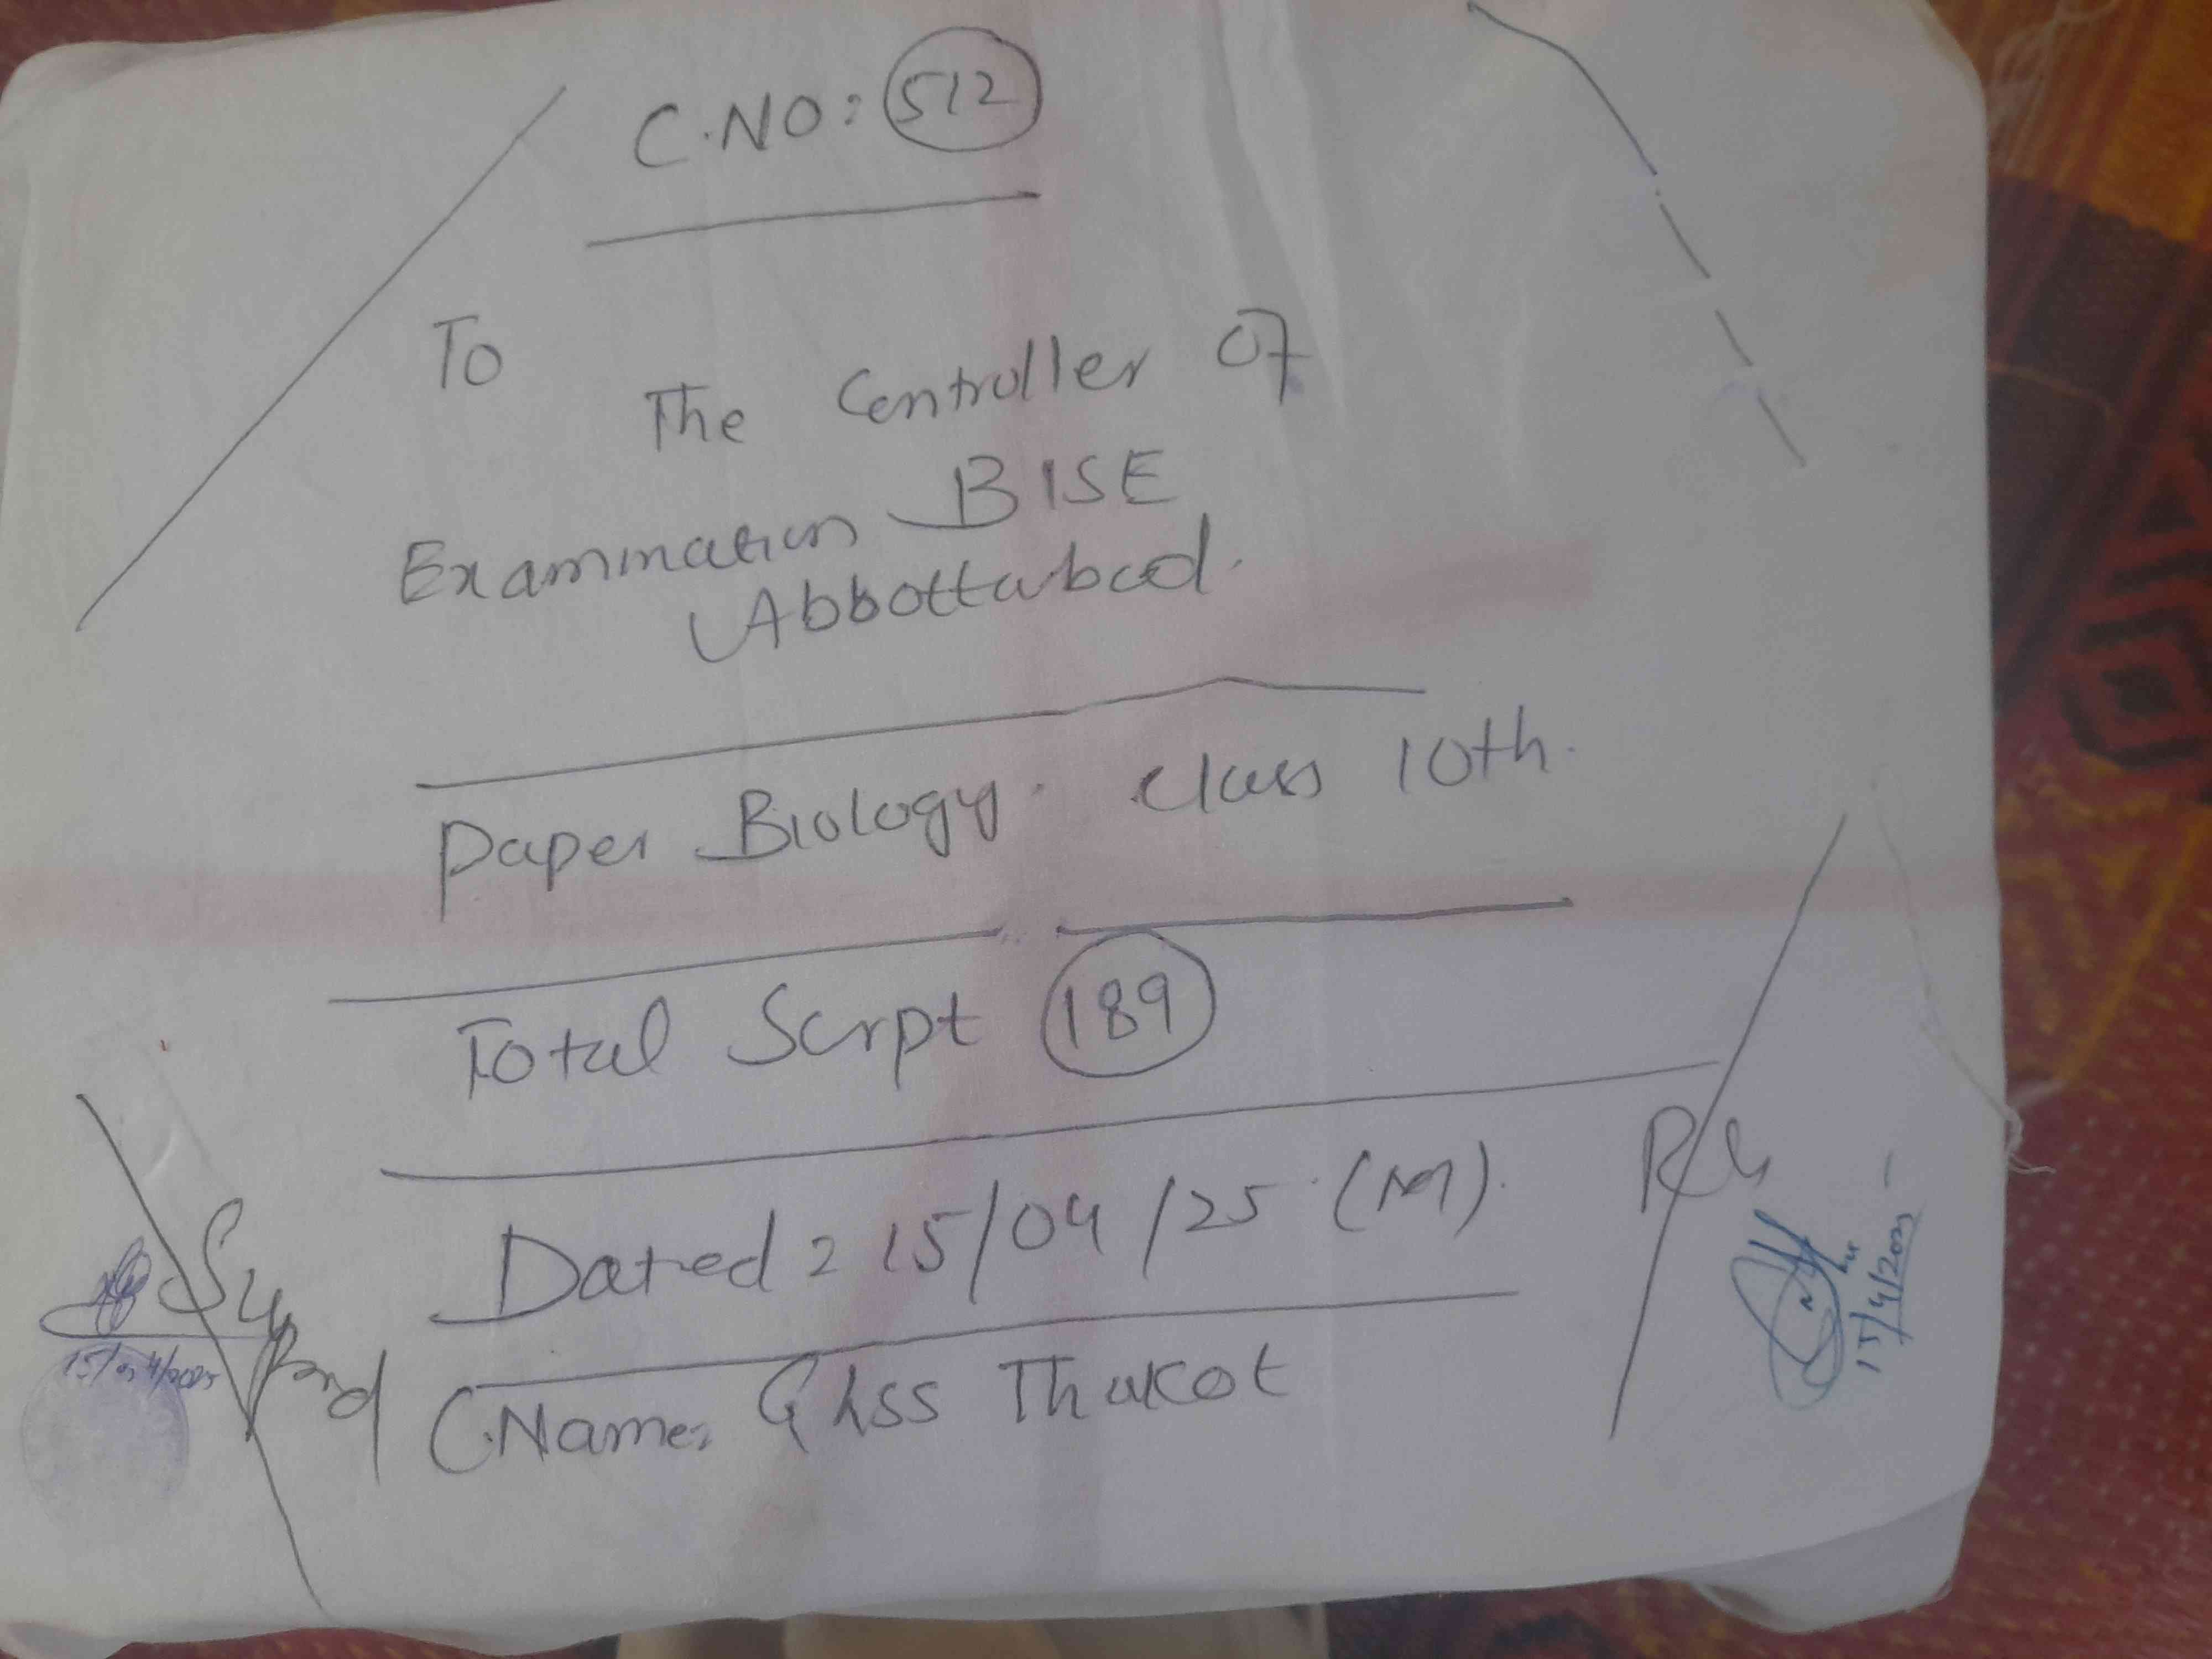 C.NO: 512
To
The Controller Of
Examination BISE
Abbottabad.
Paper Biology. Class 10th.
Total Scrpt 189
Dated: 15/04/25 (M).
C.Name: Ghss Thakot
15/04/2025
15/4/2025